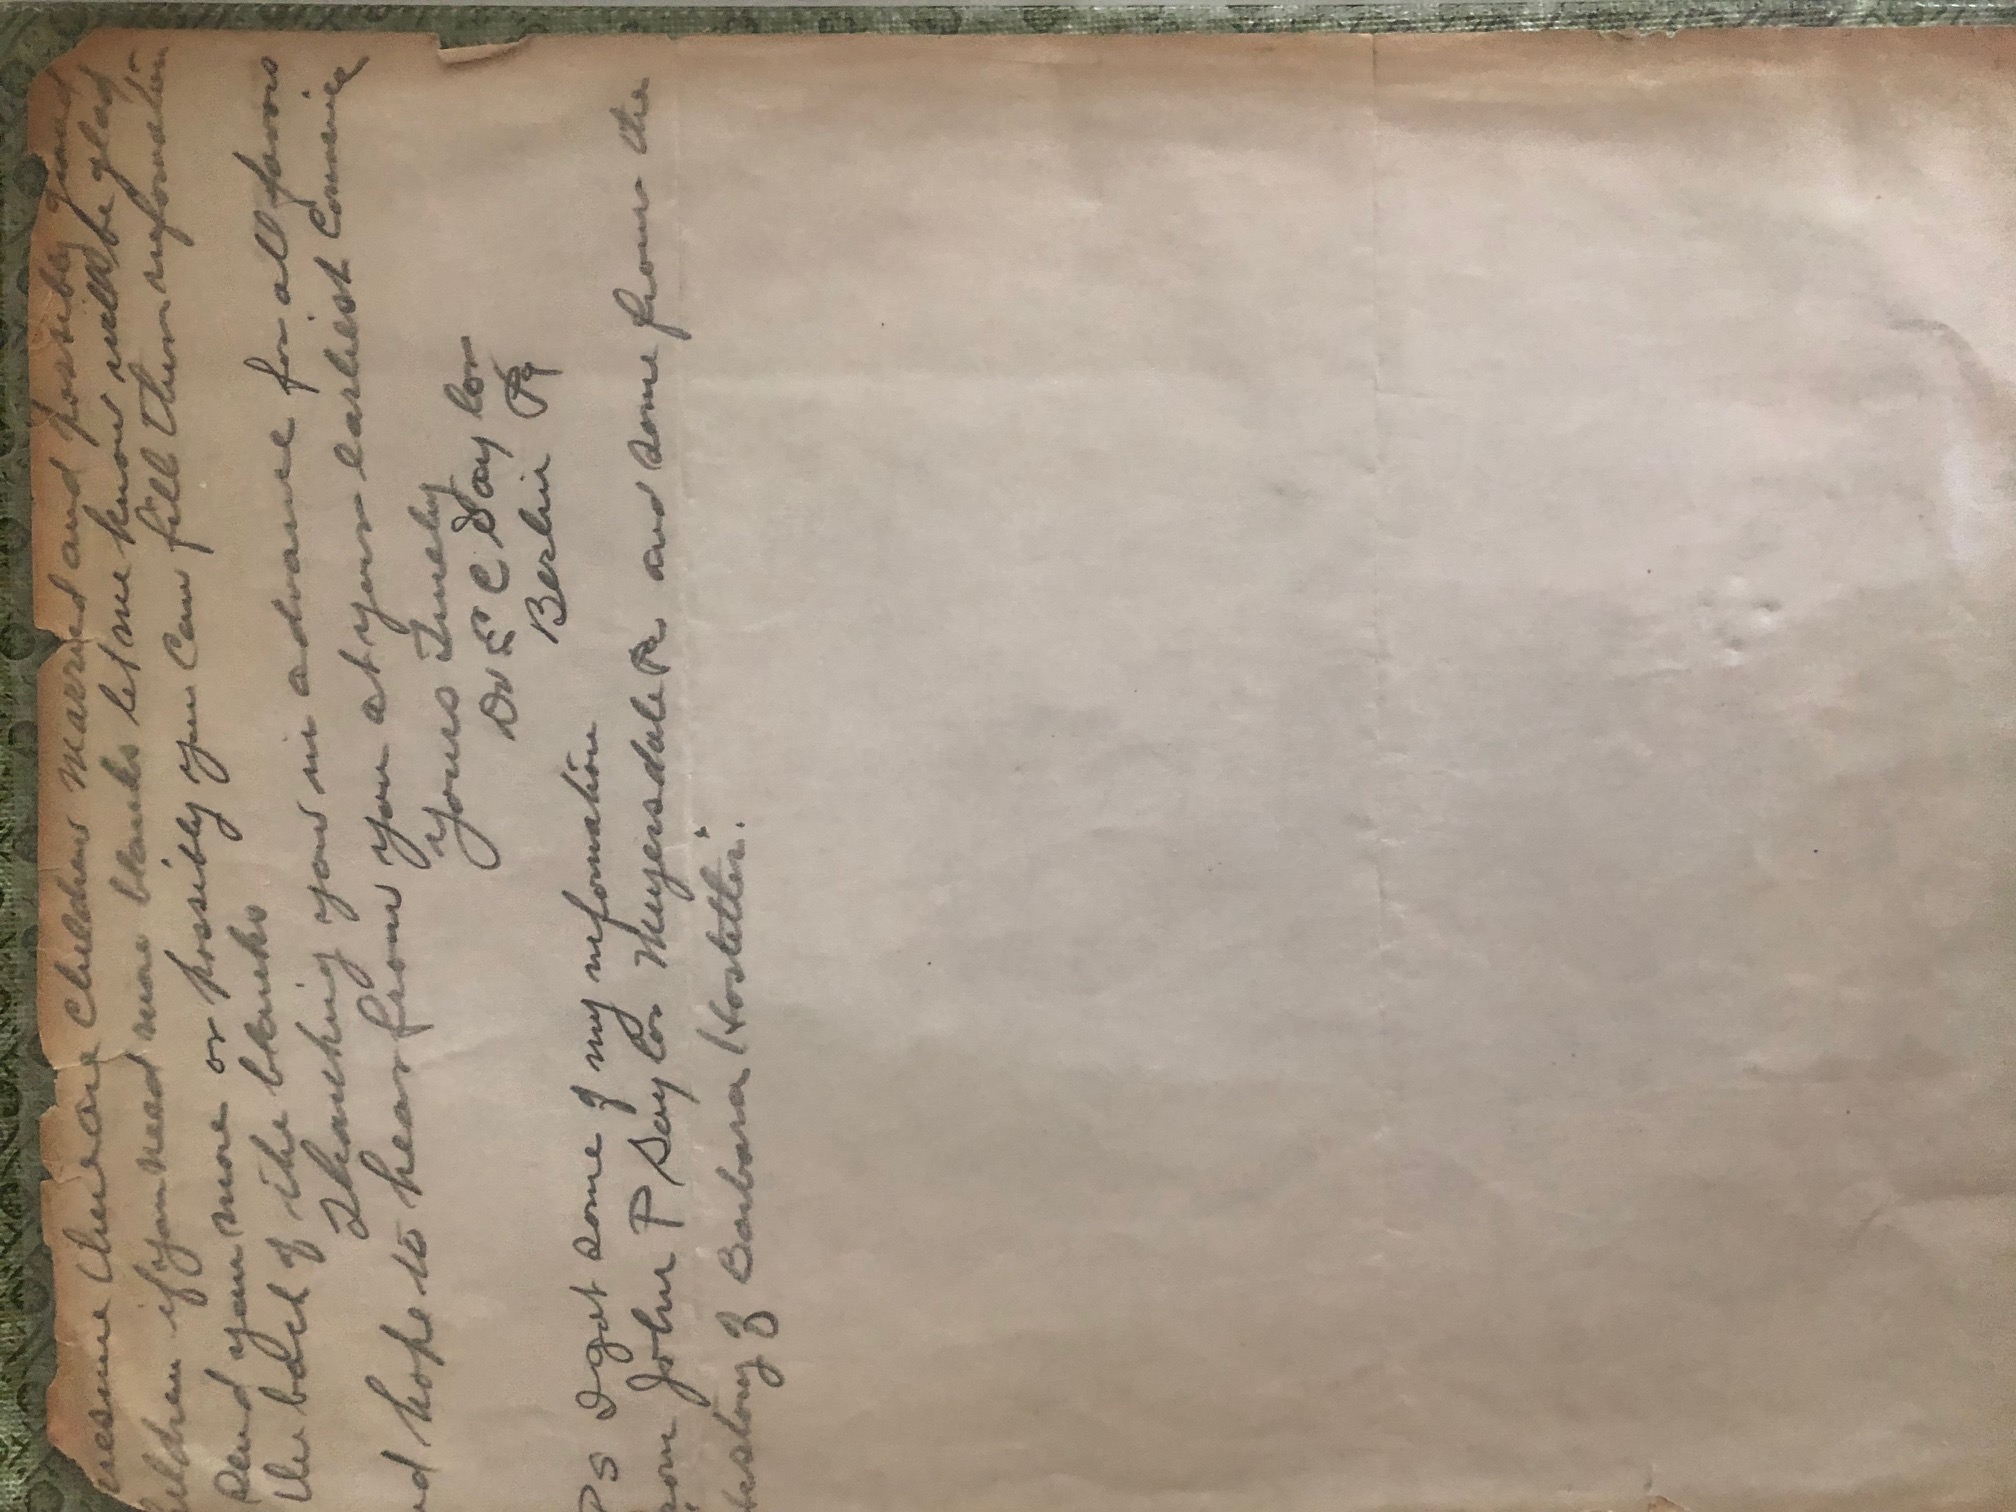 resume there are Children married and possibly grand
hildren if you need more blanks let me know will be glad to
send you more or possibly you can fill them information
the back of the blanks
Thanking you in advance for all favours
nd hope to hear from you at your earliest Convenie
yours Truely
Dr E C Saylor
Berlin Pa
Ps I got some of my information
rom John P Saylor Meyersdale Pa and some from the
history of Barbara Hostetler.